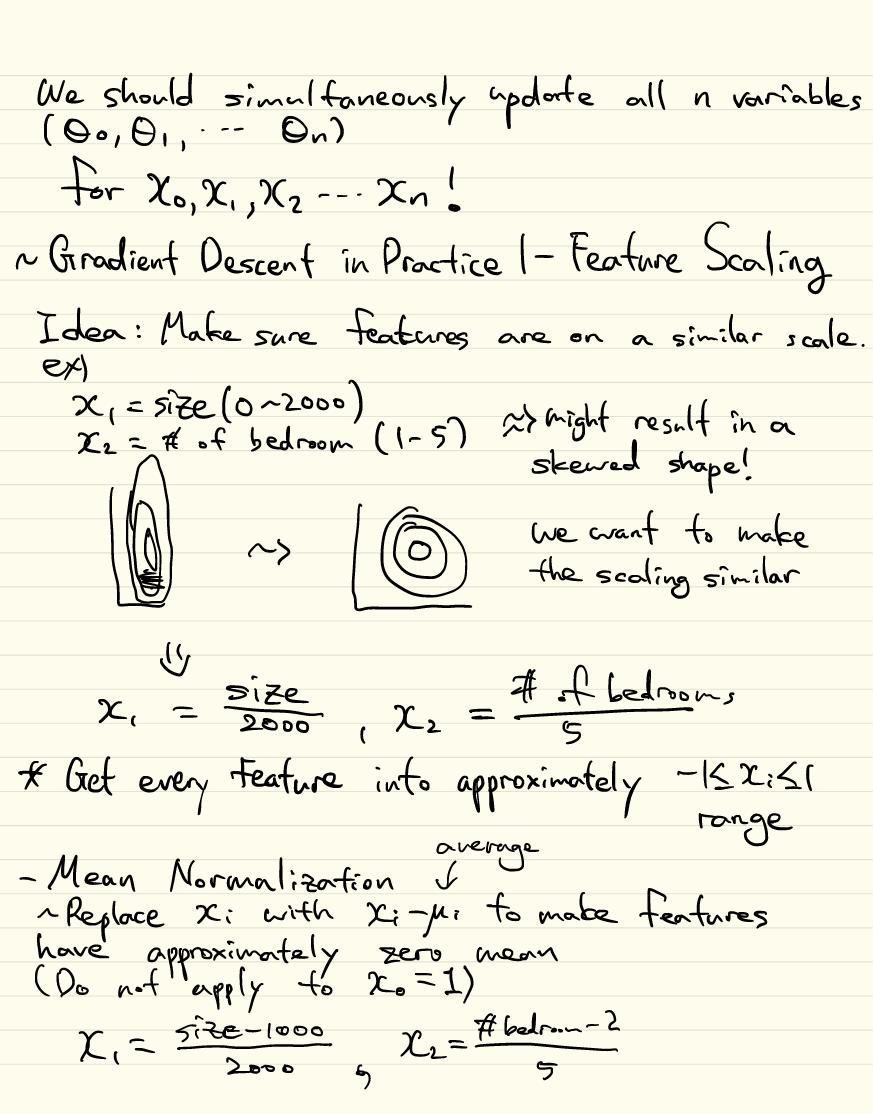 We should simultaneously update all n variables
(θ₀, θ₁, ··· θₙ)
for x₀, x₁, x₂ ··· xₙ!
~ Gradient Descent in Practice 1 - Feature Scaling
Idea: Make sure features are on a similar scale.
ex)
x₁ = size (0 ~ 2000)
x₂ = # of bedroom (1-5)
~> might result in a
skewed shape!
~>
we want to make
the scaling similar
x₁ = size / 2000 , x₂ = # of bedrooms / 5
* Get every feature into approximately -1 ≤ xᵢ ≤ 1
range
average
- Mean Normalization
~ Replace xᵢ with xᵢ - μᵢ to make features
have approximately zero mean
(Do not apply to x₀ = 1)
x₁ = size - 1000 / 2000 , x₂ = # bedroom - 2 / 5